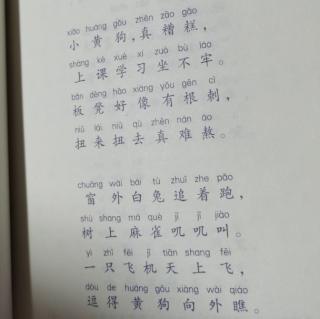 xiǎo huáng gǒu zhēn zāo gāo
小黄狗，真糟糕，
shàng kè xué xí zuò bù láo
上课学习坐不牢。
bǎn dèng hǎo xiàng yǒu gēn cì
板凳好像有根刺，
niǔ lái niǔ qù zhēn nán áo
扭来扭去真难熬。
chuāng wài bái tù zhuī zhe pǎo
窗外白兔追着跑，
shù shang má què jī jī jiào
树上麻雀叽叽叫。
yì zhī fēi jī tiān shang fēi
一只飞机天上飞，
dòu de huáng gǒu xiàng wài qiáo
逗得黄狗向外瞧。